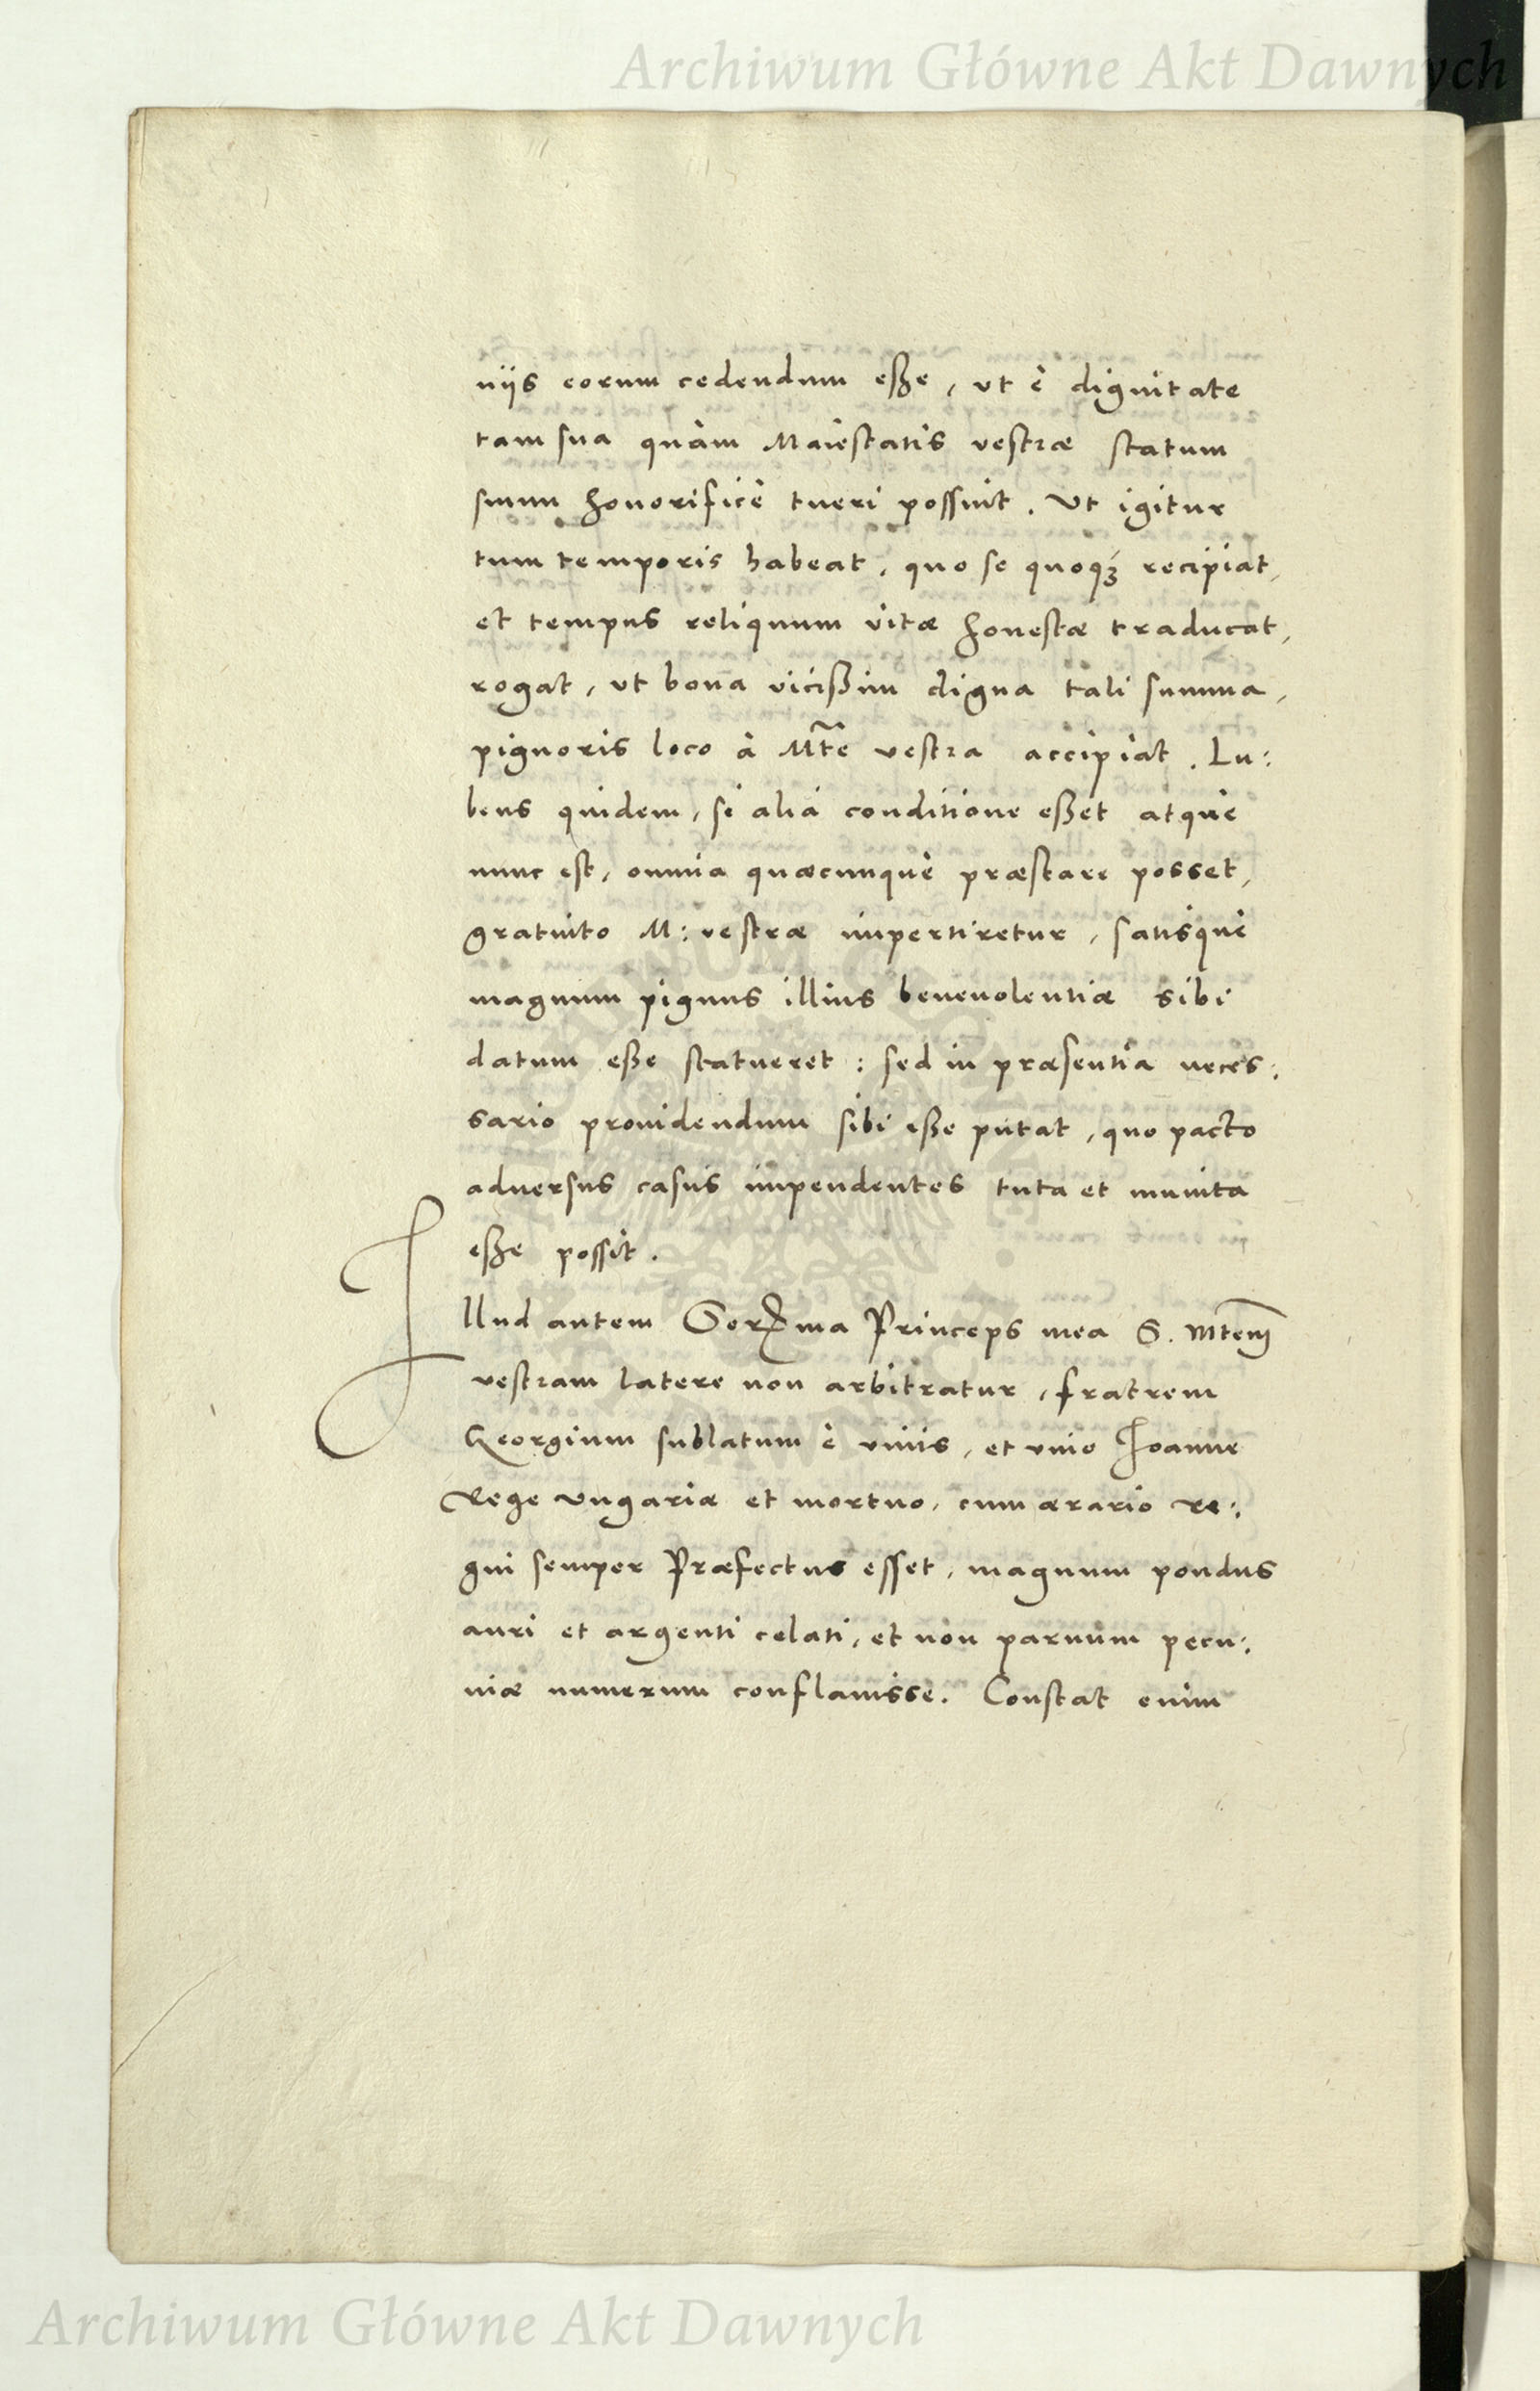 Archiwum Główne Akt Dawnych
niis eorum cedendum eße, ut è dignitate
tam sua quàm Maiestatis vestræ statum
suum honorificè tueri possint. Ut igitur
tum temporis habeat, quo se quoq; recipiat,
et tempus reliquum vitæ honestæ traducat,
rogat, ut bona vicißim digna tali summa,
pignoris loco à Mte vestra accipiat. Lu:
bens quidem, si alia conditione eßet atque
nunc est, omnia quæcunque præstare posset,
gratuito M: vestræ impertiretur, satisque
magnum pignus illius beneuolentiæ sibi
datum eße statueret: sed in præsentia neces:
sario prouidendum sibi eße putat, quo pacto
aduersus casus impendentes tuta et munita
eße possit.
Illud autem Serma Princeps mea S. Mtem
vestram latere non arbitratur, fratrem
Georgium sublatum è viuis, et viuo Joanne
Rege Ungariæ et mortuo, cum ærario re:
gni semper Præfectus esset, magnum pondus
auri et argenti celati, et non paruum pecu:
niæ numerum conflauisse. Constat enim
Archiwum Główne Akt Dawnych